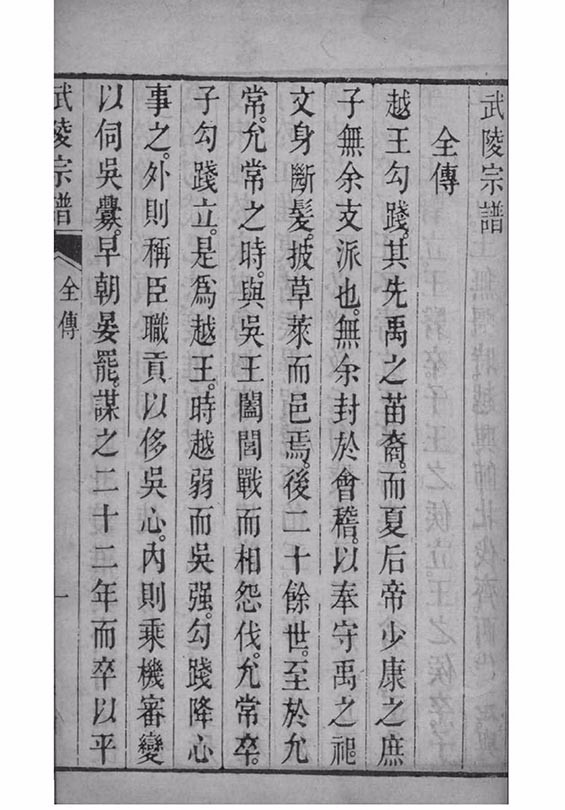 武陵宗譜
全傳
越王勾踐。其先禹之苗裔。而夏后帝少康之庶
子無余支派也。無余封於會稽。以奉守禹之祀。
文身斷髮。披草萊而邑焉。後二十餘世。至於允
常。允常之時。與吳王闔閭戰而相怨伐。允常卒。
子勾踐立。是爲越王。時越弱而吳强。勾踐降心
事之。外則稱臣職貢以侈吳心。內則乘機審變
以伺吳釁。早朝晏罷。謀之二十二年而卒以平
武陵宗譜
全傳
一